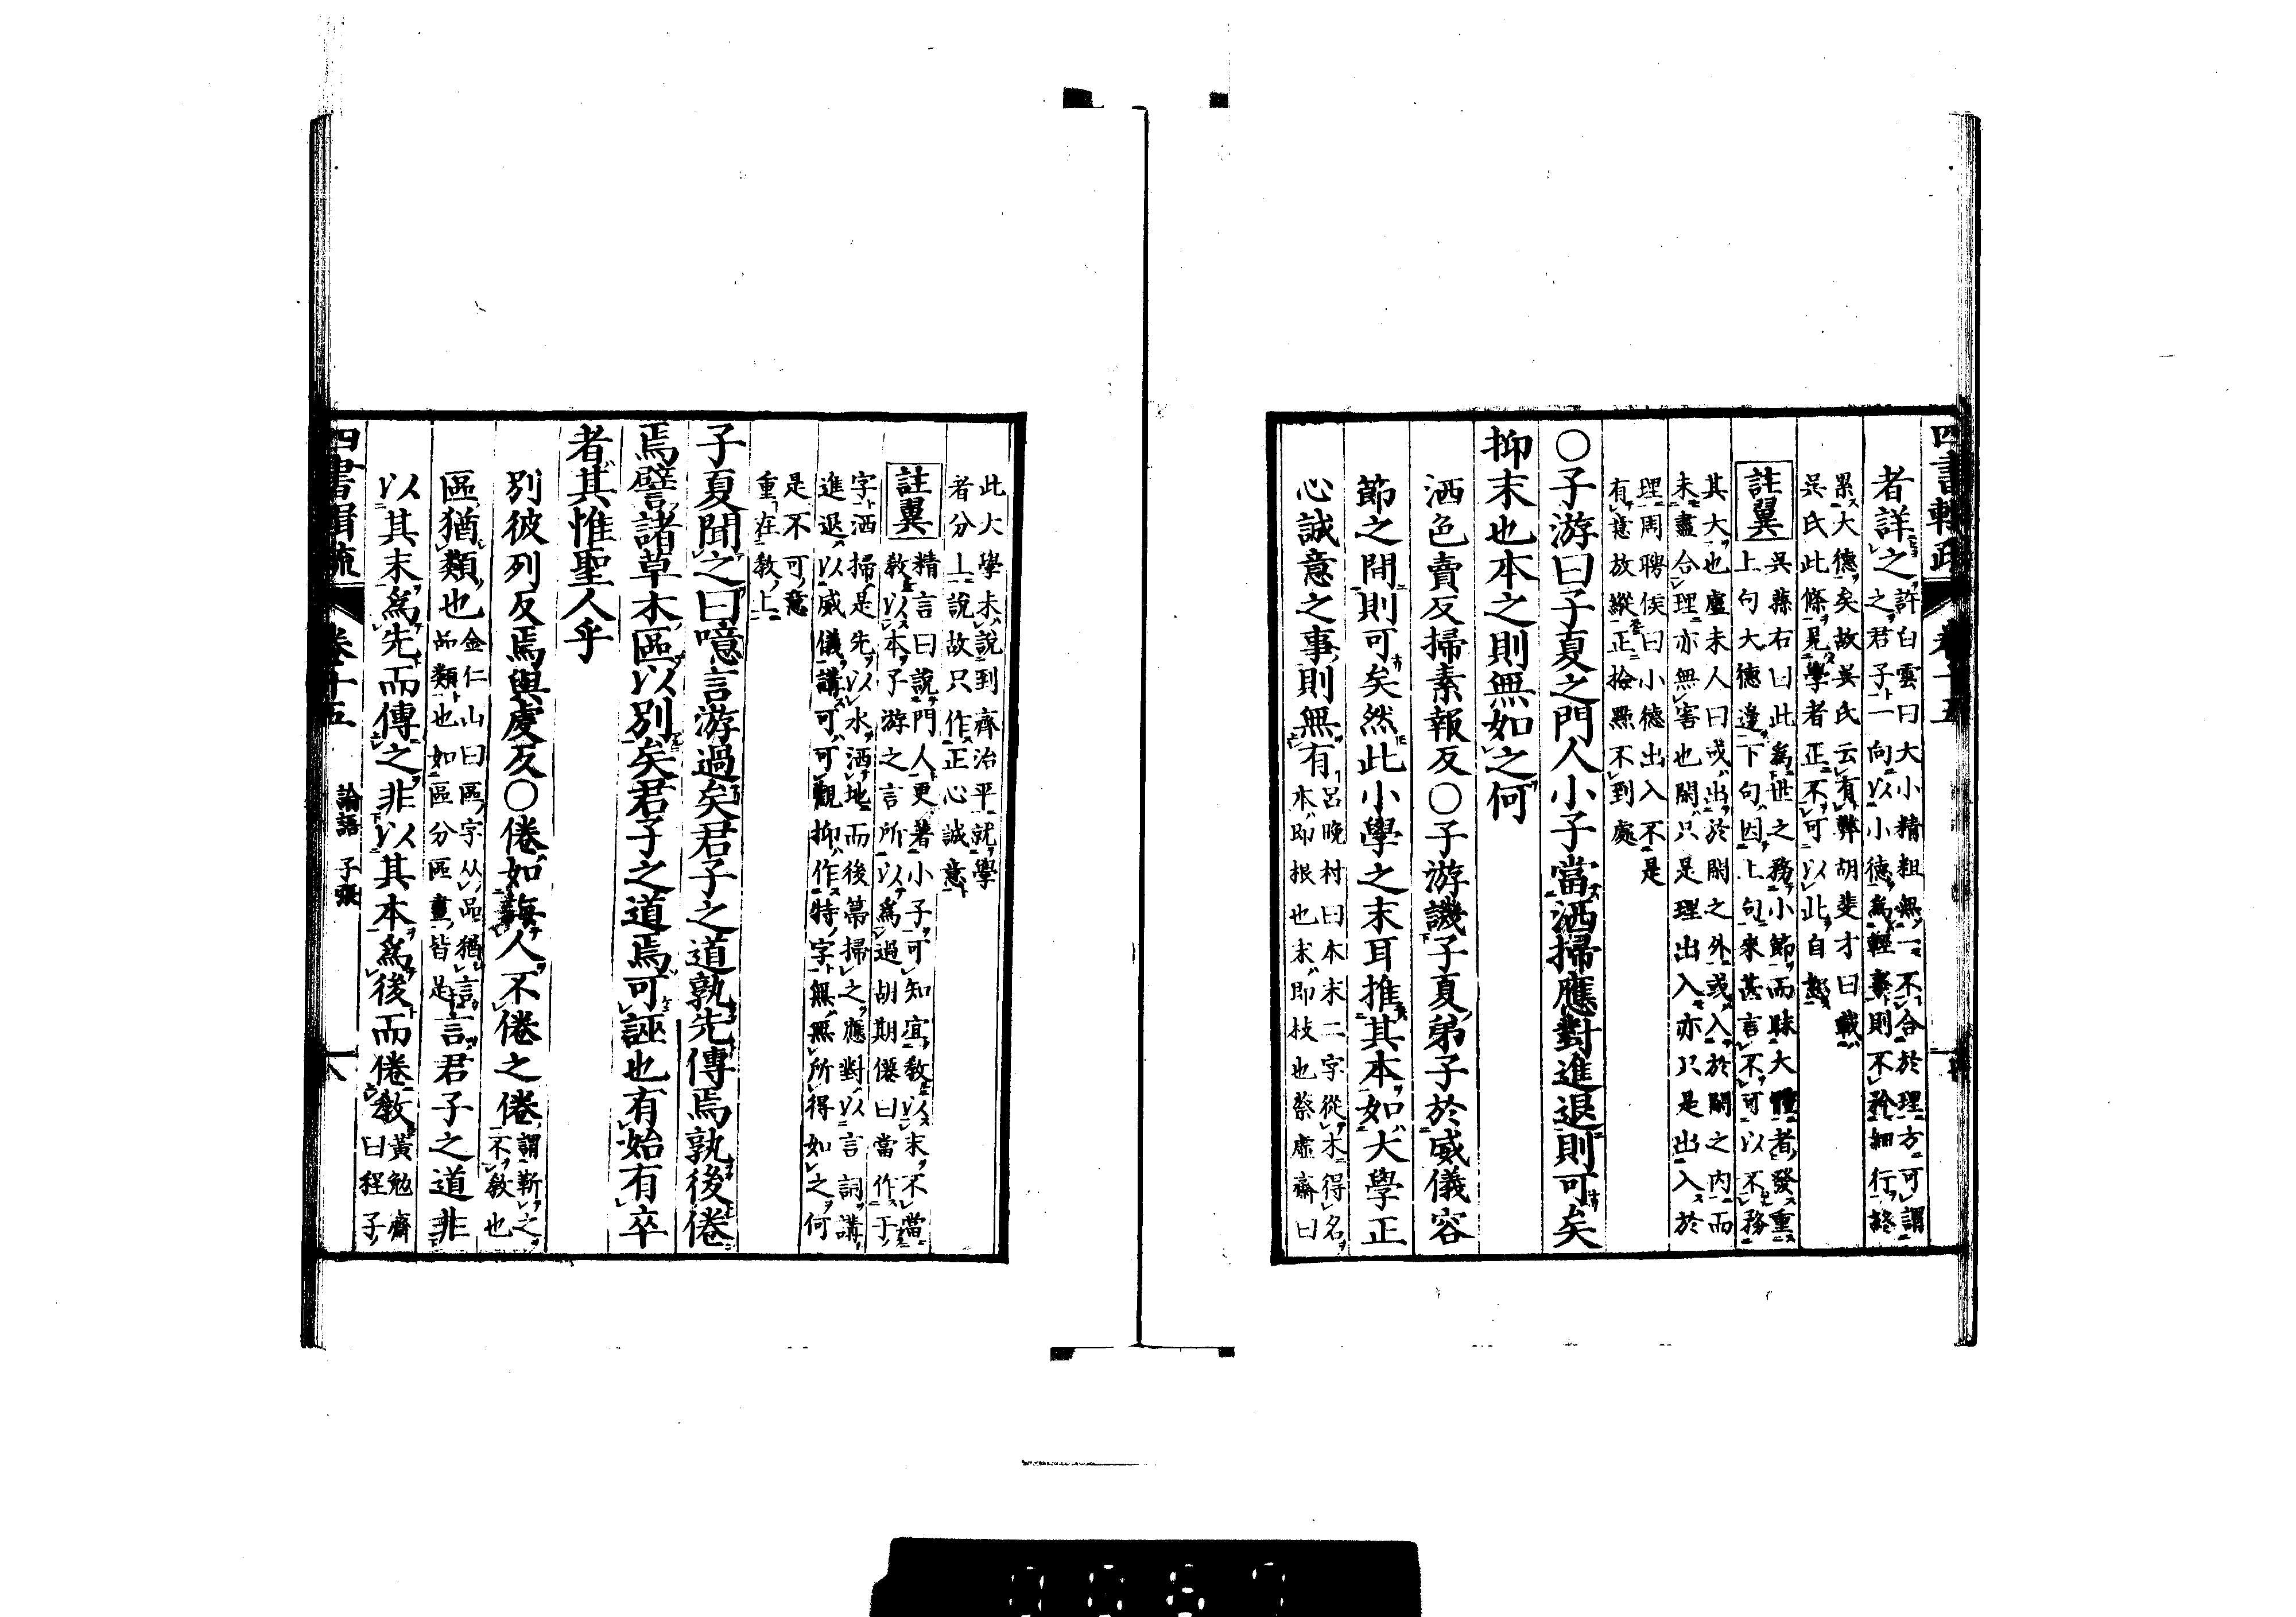 四書輯疏 卷十五
者詳之許白雲曰大小精粗無一不合於理方可謂
之君子一向以小德爲輕棄則不矜細行終
累大德矣故吳氏云有弊胡斐才曰載
吳氏此條見學者正不可以此自恕
註翼吳蓀右曰此爲世之務小節而昧大體者發重
上句大德邊下句因上句來甚言不可以不務
其大也盧未人曰或出於閑之外或入於閑之內而
未盡合理亦無害也閑只是理出入亦只是出入於
理周聘侯曰小德出入不是
有意故縱正檢點不到處
○子游曰子夏之門人小子當洒掃應對進退則可矣
抑末也本之則無如之何
洒色賣反掃素報反○子游譏子夏弟子於威儀容
節之間則可矣然此小學之末耳推其本如大學正
心誠意之事則無有呂晚村曰本末二字從木得名
本即根也末即枝也蔡虛齋曰
此大學未說到齊治平就學
者分上說故只作正心誠意
註翼精言曰說門人更著小子可知宜教以末不當
教以本子游之言所以爲過胡期僊曰當作于
字洒掃是先以水洒地而後箒掃之應對以言詞講
進退以威儀講可可觀抑作特字無無所得如之何
是不可意
重在教上
子夏聞之曰噫言游過矣君子之道孰先傳焉孰後倦
焉譬諸草木區以別矣君子之道焉可誣也有始有卒
者其惟聖人乎
別彼列反焉與處反○倦如誨人不倦之倦謂靳之
不教也
區猶類也金仁山曰區字从品猶言
品類也如區分區畫皆是言君子之道非
以其末爲先而傳之非以其本爲後而倦教黃勉齋
曰程子
四書輯疏 卷十五 論語 子張 十八